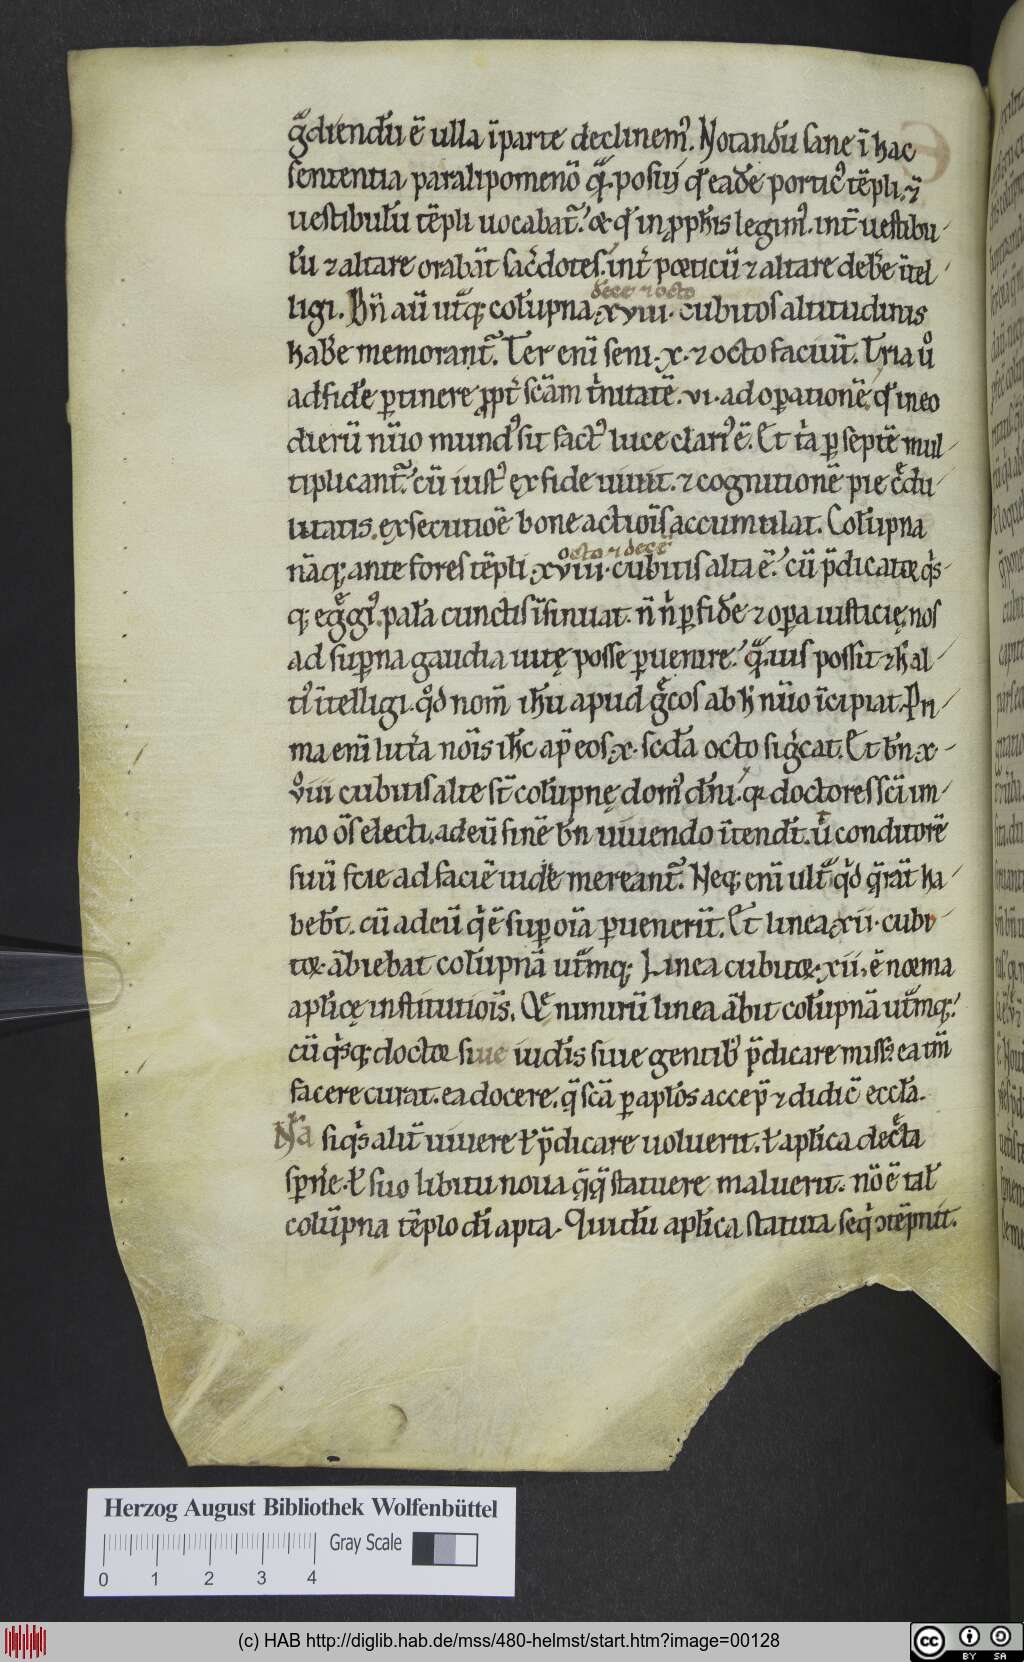 g̃diendũ ẽ ulla ĩ parte declinemꝰ. Notandũ sane ĩ hac
sententia paralipomenõ q̃. posuij q̃ eadẽ porticꝰ tẽpli. ⁊
uestibulũ tẽpli uocabat᷑. & q̃ in ꝓph̃is legimꝰ. int̃ uestibu
lũ ⁊ altare orabãt sac̃dotes. int̃ porticũ ⁊ altare deb̃e ĩtel
decẽ ⁊ octo
ligi. Bñ aũ ut̃q; colũpna .xviii. cubitos altitudinis
hab̃e memorant᷑. Ter enĩ seni .x. ⁊ octo faciũt. Tria ů
ad fidẽ ꝑtinere ꝓpt̃ sc̃am t̃nitatẽ. vi. ad oꝑationẽ. q̃ in eo
dierũ nũo mundꝰ sit factꝰ luce clariꝰ ẽ. Et t̃a ꝑ septẽ mul
tiplicant᷑. cũ iustꝰ ex fide uiuit. ⁊ cognitionẽ pie c̃du
litatis. exsecutiõe bone actiõis accumulat. Colũpna
octo ⁊ decẽ
nãq; ante fores tẽpli .xviii. cubitis alta ẽ. cũ p̃dicator q̃s
q; eg̃giꝰ. palã cunctis ĩsinuat. ñ ñ ꝑ fidẽ ⁊ oꝑa iusticię. nos
ad suꝑna gaudia uitę posse ꝑuenire. q̃uis possit ⁊ h̃ al
tiꝰ ĩtelligi. q̊d nom̃ ih̃u apud g̃cos ab h̃ nũo ĩcipiat. Pri
ma enĩ litt̃a nõis ih̃c ap̃ eos .x. sc̃da octo sig̃cat. Et bñ .x.
viii cubitis alte st̃ colũpnę domꝰ dñi. q̃ doctores sc̃i im
mo õs electi. ad eũ finẽ bñ uiuendo ĩtendt̃. ů conditorẽ
suũ facie ad faciẽ uidẽ mereant᷑. Neq; enĩ ult̃ q̊d q̃rãt ha
beb̃t. cũ ad eũ q̃ ẽ suꝑ oĩa ꝑuenerĩt. Et linea .xii. cubi
tor ãbiebat colũpnã ut̃mq; Linea cubitor .xii. ẽ norma
apl̃icę institutiõis. Et nimirũ linea ãbit colũpnã ut̃mq;
cũ q̃sq; doctor siue iudẽis siue gentibꝰ p̃dicare missꝰ ea tm̃
facere curat. ea docere. q̃ sc̃a ꝑ apl̃os accep̃ ⁊ didic̃ eccl̃a.
Nã siq̃s alit̃ uiuere ł p̃dicare uoluerit. ł apl̃ica dec̃ta
sꝑñe. ł suo libitu noua q̃q̃ statuere maluerit. nõ ẽ tal̃
colũpna tẽplo dĩ apta. Qui dũ apl̃ica statuta seq̃ ↄtẽpnit.
Herzog August Bibliothek Wolfenbüttel
Gray Scale
0 1 2 3 4
(c) HAB http://diglib.hab.de/mss/480-helmst/start.htm?image=00128
cc BY SA